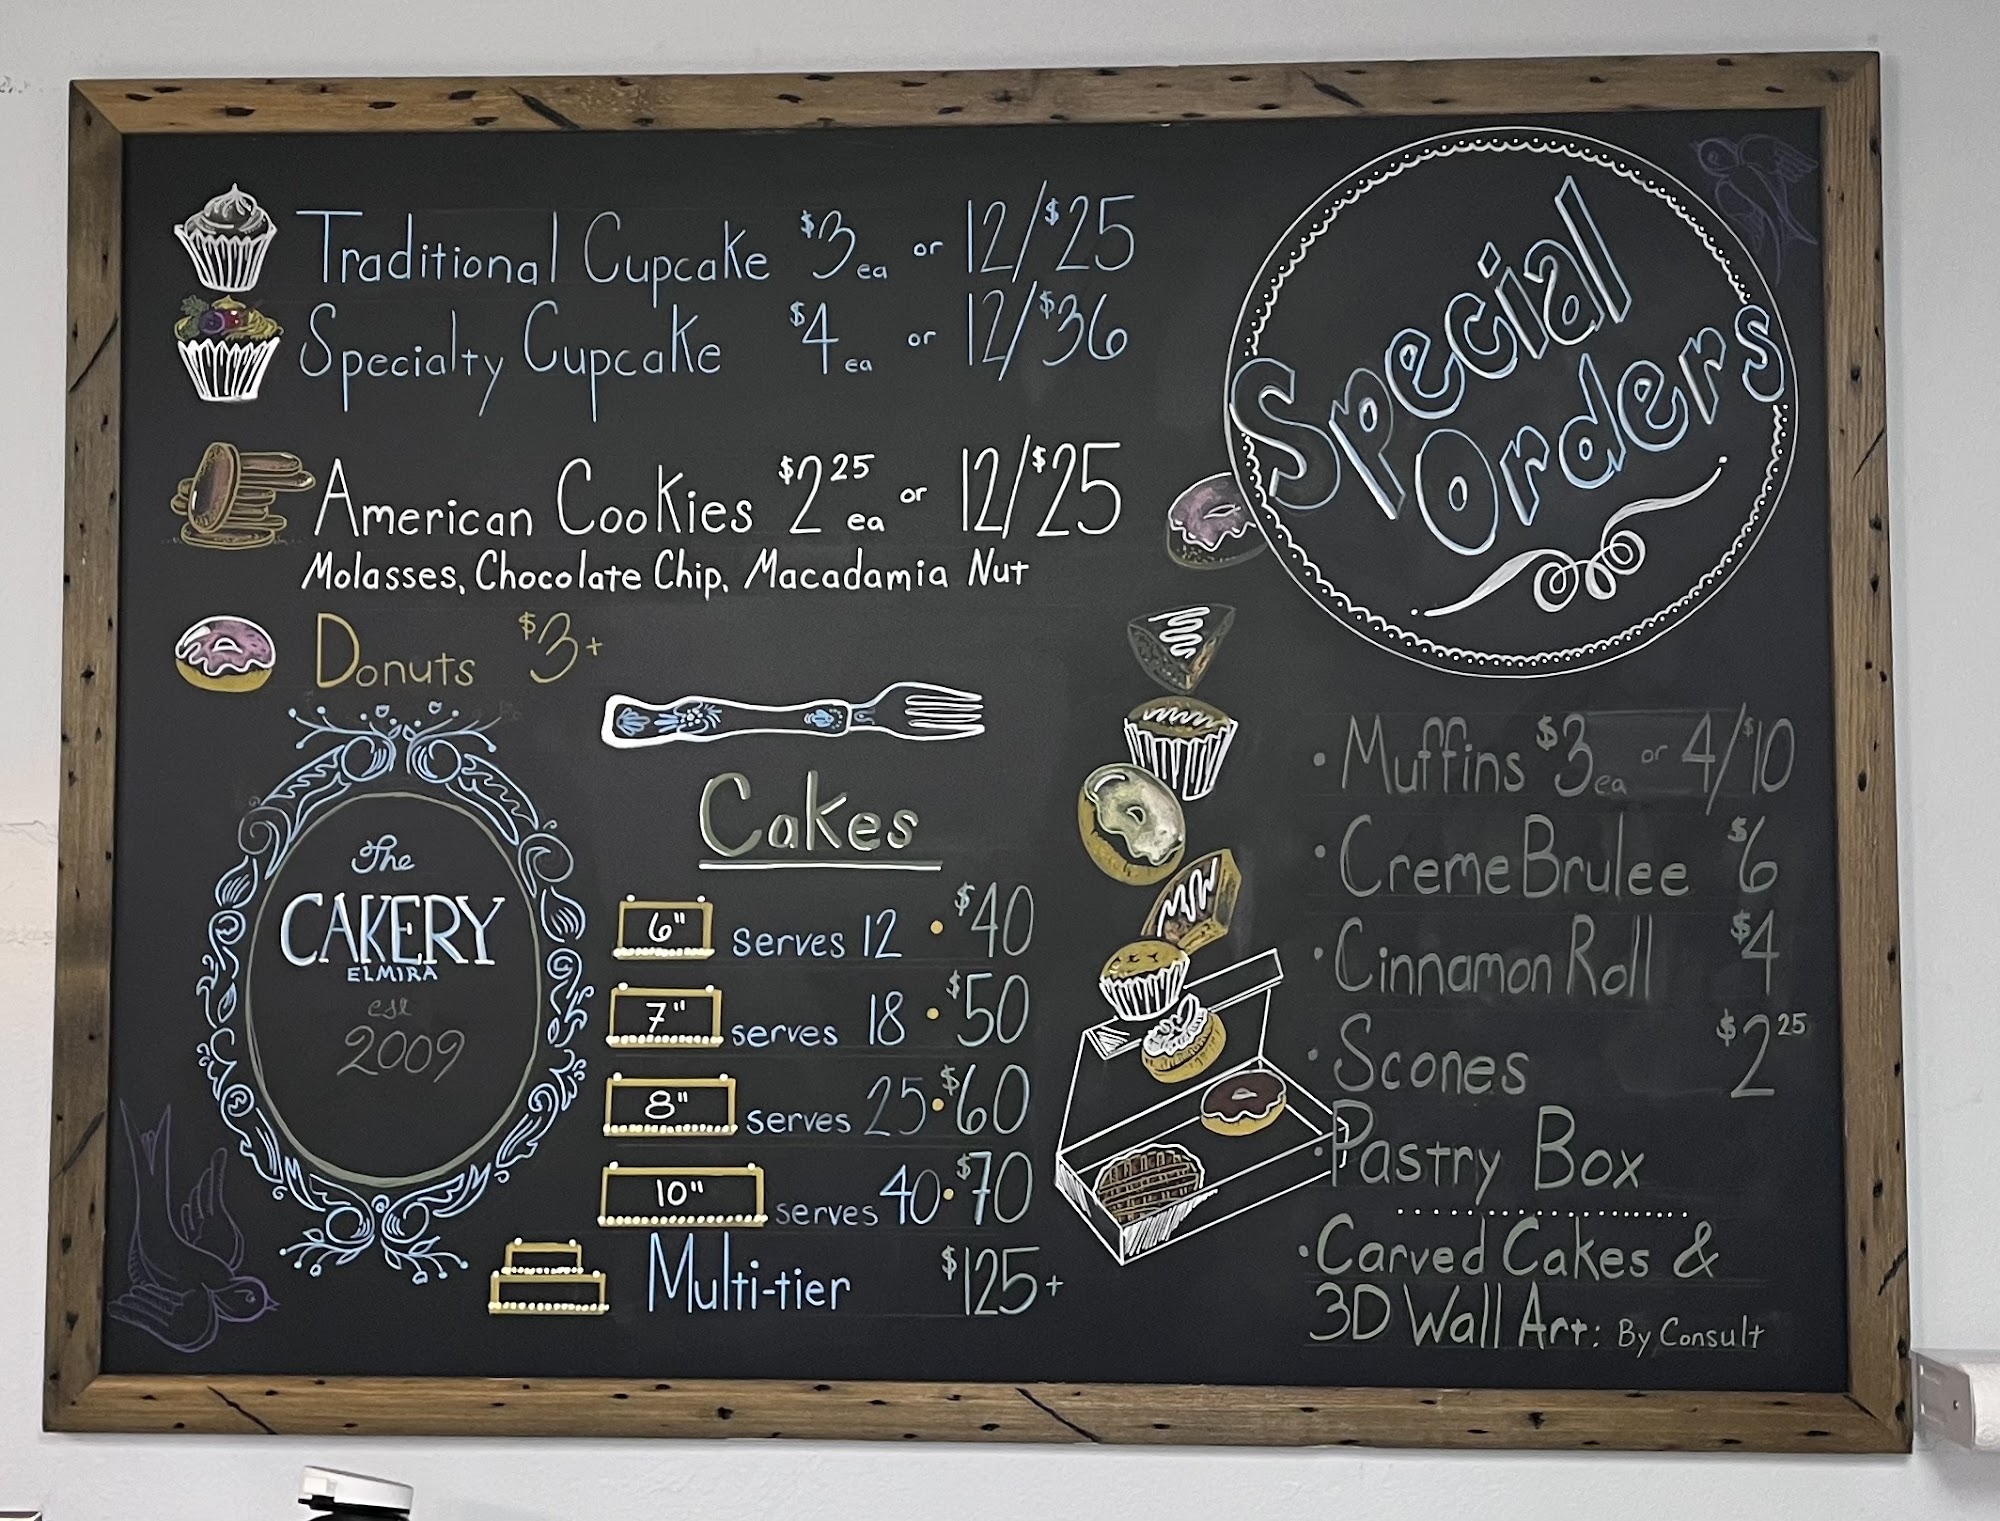 Traditional Cupcake $3 ea or 12/$25
Specialty Cupcake $4 ea or 12/$36
American Cookies $2 25 ea or 12/$25
Molasses, Chocolate Chip, Macadamia Nut
Donuts $3+
The
CAKERY
ELMIRA
est
2009
Cakes
6" serves 12 • $40
7" serves 18 • $50
8" serves 25 • $60
10" serves 40 • $70
Multi-tier $125+
Special
Orders
• Muffins $3 ea or 4/$10
• Creme Brulee $6
• Cinnamon Roll $4
• Scones $2 25
• Pastry Box
• Carved Cakes &
3D Wall Art: By Consult